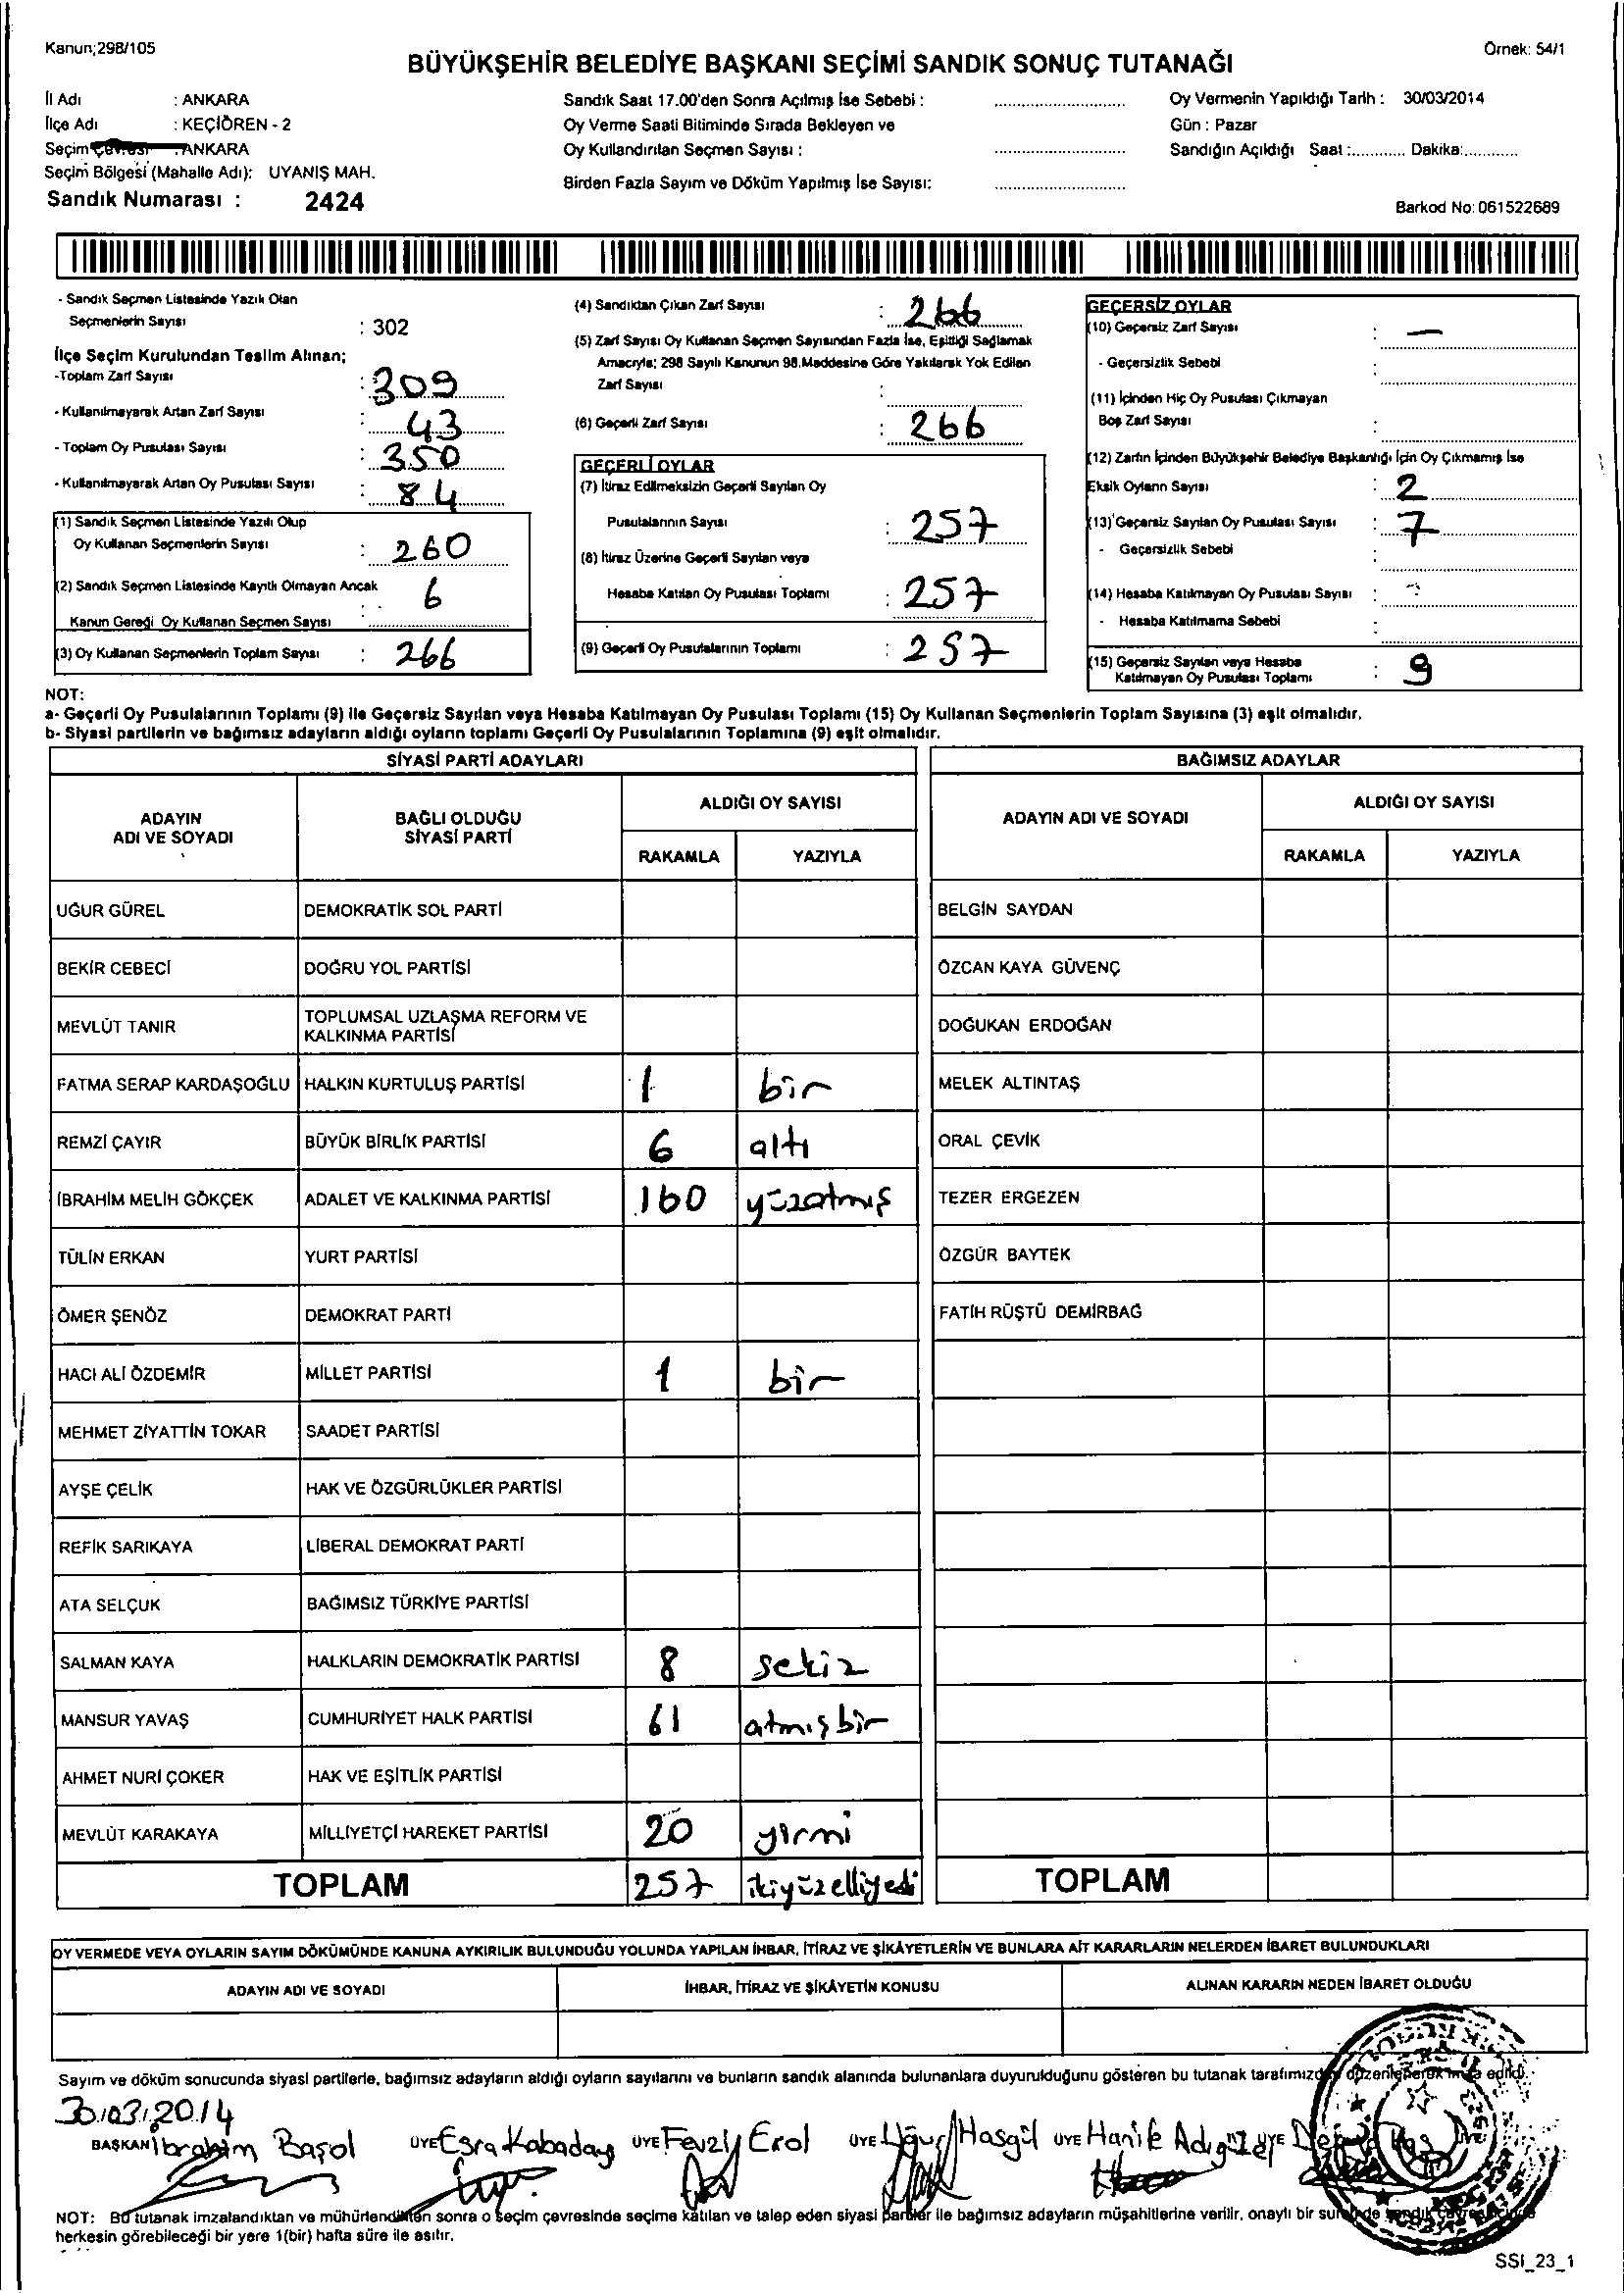 Kanun;298/105
Örnek: 54/1
BÜYÜKŞEHİR BELEDİYE BAŞKANI SEÇİMİ SANDIK SONUÇ TUTANAĞI
İl Adı : ANKARA
İlçe Adı : KEÇİÖREN - 2
Seçim Çevresi : ANKARA
Seçim Bölgesi (Mahalle Adı): UYANIŞ MAH.
Sandık Numarası : 2424
Sandık Saat 17.00'den Sonra Açılmış İse Sebebi :
Oy Verme Saati Bitiminde Sırada Bekleyen ve
Oy Kullandırılan Seçmen Sayısı :
Birden Fazla Sayım ve Döküm Yapılmış İse Sayısı:
Oy Vermenin Yapıldığı Tarih : 30/03/2014
Gün : Pazar
Sandığın Açıldığı Saat :............ Dakika:............
Barkod No: 061522689
- Sandık Seçmen Listesinde Yazılı Olan
Seçmenlerin Sayısı : 302
İlçe Seçim Kurulundan Teslim Alınan;
-Toplam Zarf Sayısı : 309
- Kullanılmayarak Artan Zarf Sayısı : 43
- Toplam Oy Pusulası Sayısı : 350
- Kullanılmayarak Artan Oy Pusulası Sayısı : 84
(1) Sandık Seçmen Listesinde Yazılı Olup
Oy Kullanan Seçmenlerin Sayısı : 260
(2) Sandık Seçmen Listesinde Kayıtlı Olmayan Ancak
Kanun Gereği Oy Kullanan Seçmen Sayısı : 6
(3) Oy Kullanan Seçmenlerin Toplam Sayısı : 266
(4) Sandıktan Çıkan Zarf Sayısı : 266
(5) Zarf Sayısı Oy Kullanan Seçmen Sayısından Fazla İse, Eşitliği Sağlamak
Amacıyla; 298 Sayılı Kanunun 98.Maddesine Göre Yakılarak Yok Edilen
Zarf Sayısı :
(6) Geçerli Zarf Sayısı : 266
GEÇERLİ OYLAR
(7) İtiraz Edilmeksizin Geçerli Sayılan Oy
Pusulalarının Sayısı : 257
(8) İtiraz Üzerine Geçerli Sayılan veya
Hesaba Katılan Oy Pusulası Toplamı : 257
(9) Geçerli Oy Pusulalarının Toplamı : 257
GEÇERSİZ OYLAR
(10) Geçersiz Zarf Sayısı : —
- Geçersizlik Sebebi :
(11) İçinden Hiç Oy Pusulası Çıkmayan
Boş Zarf Sayısı :
(12) Zarfın İçinden Büyükşehir Belediye Başkanlığı İçin Oy Çıkmamış İse
Eksik Oyların Sayısı : 2
(13) Geçersiz Sayılan Oy Pusulası Sayısı : 7
- Geçersizlik Sebebi :
(14) Hesaba Katılmayan Oy Pusulası Sayısı : -
- Hesaba Katılmama Sebebi :
(15) Geçersiz Sayılan veya Hesaba
Katılmayan Oy Pusulası Toplamı : 9
NOT:
a- Geçerli Oy Pusulalarının Toplamı (9) ile Geçersiz Sayılan veya Hesaba Katılmayan Oy Pusulası Toplamı (15) Oy Kullanan Seçmenlerin Toplam Sayısına (3) eşit olmalıdır.
b- Siyasi partilerin ve bağımsız adayların aldığı oyların toplamı Geçerli Oy Pusulalarının Toplamına (9) eşit olmalıdır.
SİYASİ PARTİ ADAYLARI
ADAYIN ADI VE SOYADI BAĞLI OLDUĞU SİYASİ PARTİ ALDIĞI OY SAYISI
RAKAMLA YAZIYLA
UĞUR GÜREL DEMOKRATİK SOL PARTİ
BEKİR CEBECİ DOĞRU YOL PARTİSİ
MEVLÜT TANIR TOPLUMSAL UZLAŞMA REFORM VE KALKINMA PARTİSİ
FATMA SERAP KARDAŞOĞLU HALKIN KURTULUŞ PARTİSİ 1 bir
REMZİ ÇAYIR BÜYÜK BİRLİK PARTİSİ 6 altı
İBRAHİM MELİH GÖKÇEK ADALET VE KALKINMA PARTİSİ 160 yüzatmış
TÜLİN ERKAN YURT PARTİSİ
ÖMER ŞENÖZ DEMOKRAT PARTİ
HACI ALİ ÖZDEMİR MİLLET PARTİSİ 1 bir
MEHMET ZİYATTİN TOKAR SAADET PARTİSİ
AYŞE ÇELİK HAK VE ÖZGÜRLÜKLER PARTİSİ
REFİK SARIKAYA LİBERAL DEMOKRAT PARTİ
ATA SELÇUK BAĞIMSIZ TÜRKİYE PARTİSİ
SALMAN KAYA HALKLARIN DEMOKRATİK PARTİSİ 8 sekiz
MANSUR YAVAŞ CUMHURİYET HALK PARTİSİ 61 atmışbir
AHMET NURİ ÇOKER HAK VE EŞİTLİK PARTİSİ
MEVLÜT KARAKAYA MİLLİYETÇİ HAREKET PARTİSİ 20 yirmi
TOPLAM 257 ikiyüzelliyedi
BAĞIMSIZ ADAYLAR
ADAYIN ADI VE SOYADI ALDIĞI OY SAYISI
RAKAMLA YAZIYLA
BELGİN SAYDAN
ÖZCAN KAYA GÜVENÇ
DOĞUKAN ERDOĞAN
MELEK ALTINTAŞ
ORAL ÇEVİK
TEZER ERGEZEN
ÖZGÜR BAYTEK
FATİH RÜŞTÜ DEMİRBAĞ
TOPLAM
OY VERMEDE VEYA OYLARIN SAYIM DÖKÜMÜNDE KANUNA AYKIRILIK BULUNDUĞU YOLUNDA YAPILAN İHBAR, İTİRAZ VE ŞİKÂYETLERİN VE BUNLARA AİT KARARLARIN NELERDEN İBARET BULUNDUKLARI
ADAYIN ADI VE SOYADI İHBAR, İTİRAZ VE ŞİKÂYETİN KONUSU ALINAN KARARIN NEDEN İBARET OLDUĞU
Sayım ve döküm sonucunda siyasi partilerle, bağımsız adayların aldığı oyların sayılarını ve bunların sandık alanında bulunanlara duyurulduğunu gösteren bu tutanak tarafımızdan düzenlenerek imza edildi.
30.03.2014
BAŞKAN İbrahim Başol ÜYE Esra Kabadayı ÜYE Fevzi Erol ÜYE Uğur Hasgül ÜYE Hanife Adıgüzel ÜYE
NOT: Bu tutanak imzalandıktan ve mühürlendikten sonra o seçim çevresinde seçime katılan ve talep eden siyasi partiler ile bağımsız adayların müşahitlerine verilir, onaylı bir sureti de sandık çevresinde
herkesin görebileceği bir yere 1(bir) hafta süre ile asılır.
SSI_23_1